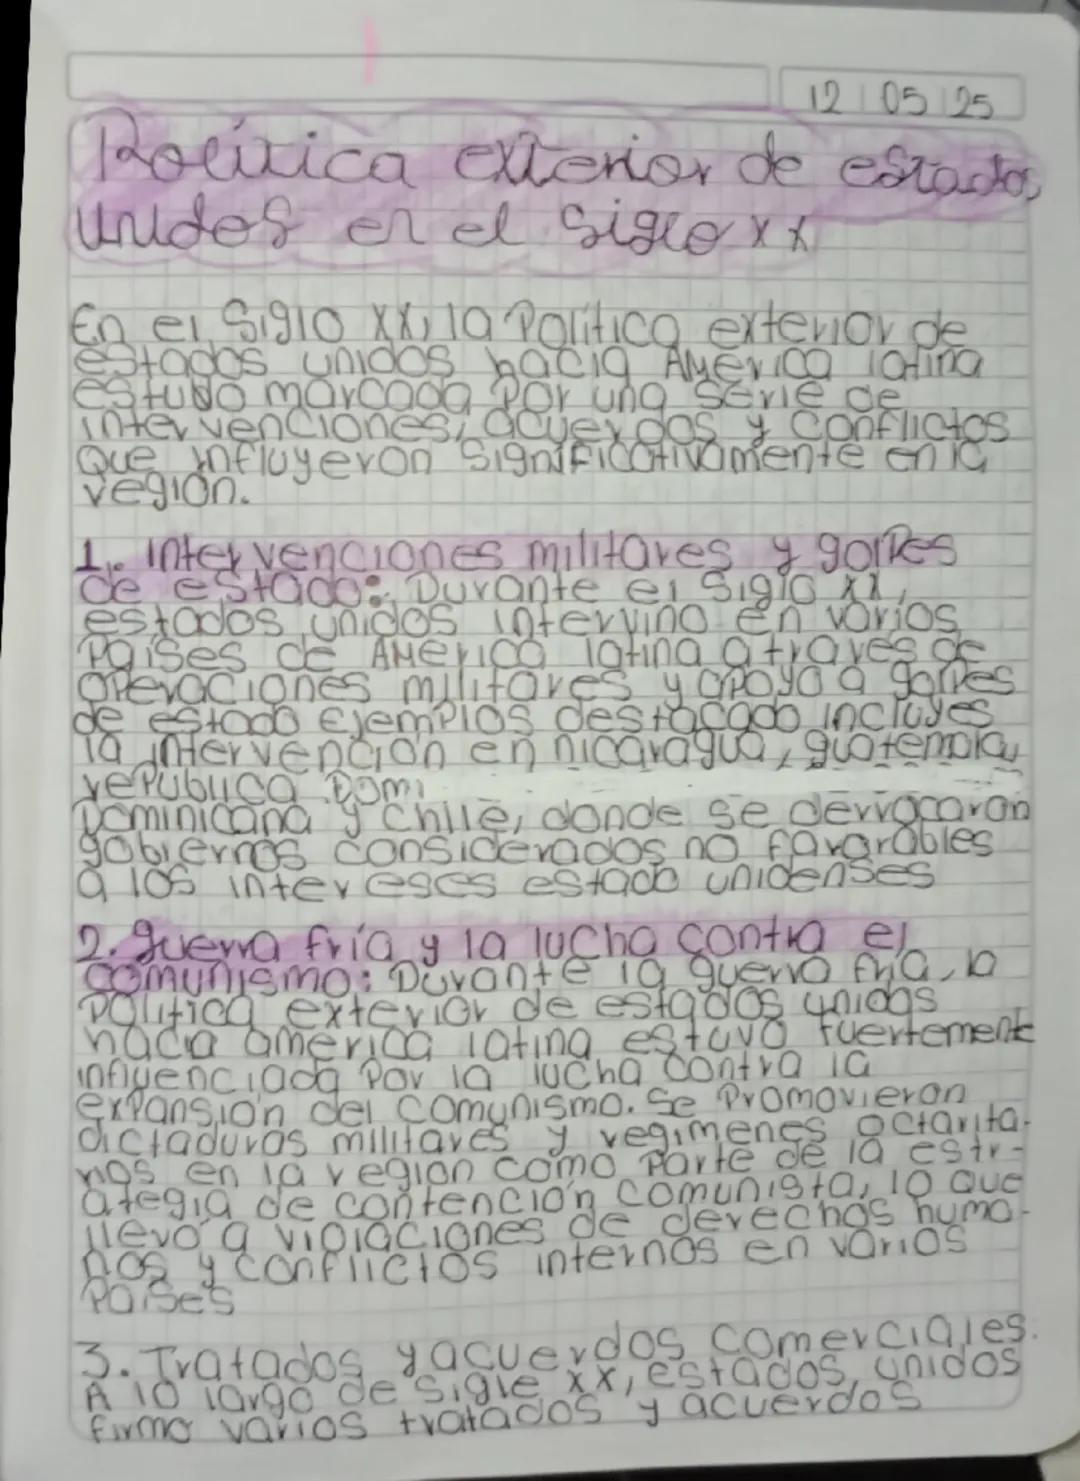 12 05 25
Política exterior de estados
unidos en el siglo xx
En el siglo XX, la Política exterior de
estados unidos hacia América latina
estuvo marcada por una serie de
intervenciones, acuerdos y conflictos
Que influyeron significativamente en la
región.
1. Intervenciones militares y golpes
de estado: Durante el siglo xx,
estados unidos intervino en varios
países de América latina a través de
operaciones militares y apoyo a golpes
de estado Ejemplos destacado incluyes
la intervención en nicaragua, guatemala,
republica Domi
Dominicana y Chile, donde se derrocaron
gobiernos considerados no favorables
a los intereses estado unidenses
2. guerra fría y la lucha contra el
comunismo: Durante la guerra fría, la
Política exterior de estados unidos
hacia américa latina estuvo fuertemente
influenciada por la lucha contra la
expansión del comunismo. Se Promovieron
dictaduras militares y regimenes octarita-
nos en la region como Parte de la estr-
ategia de contención comunista, lo que
llevó a violaciones de derechos huma-
nos y conflictos internos en varios
Países
3. Tratados y acuerdos comerciales.
A lo largo de sigle xx, estados unidos
firmo varios tratados y acuerdos